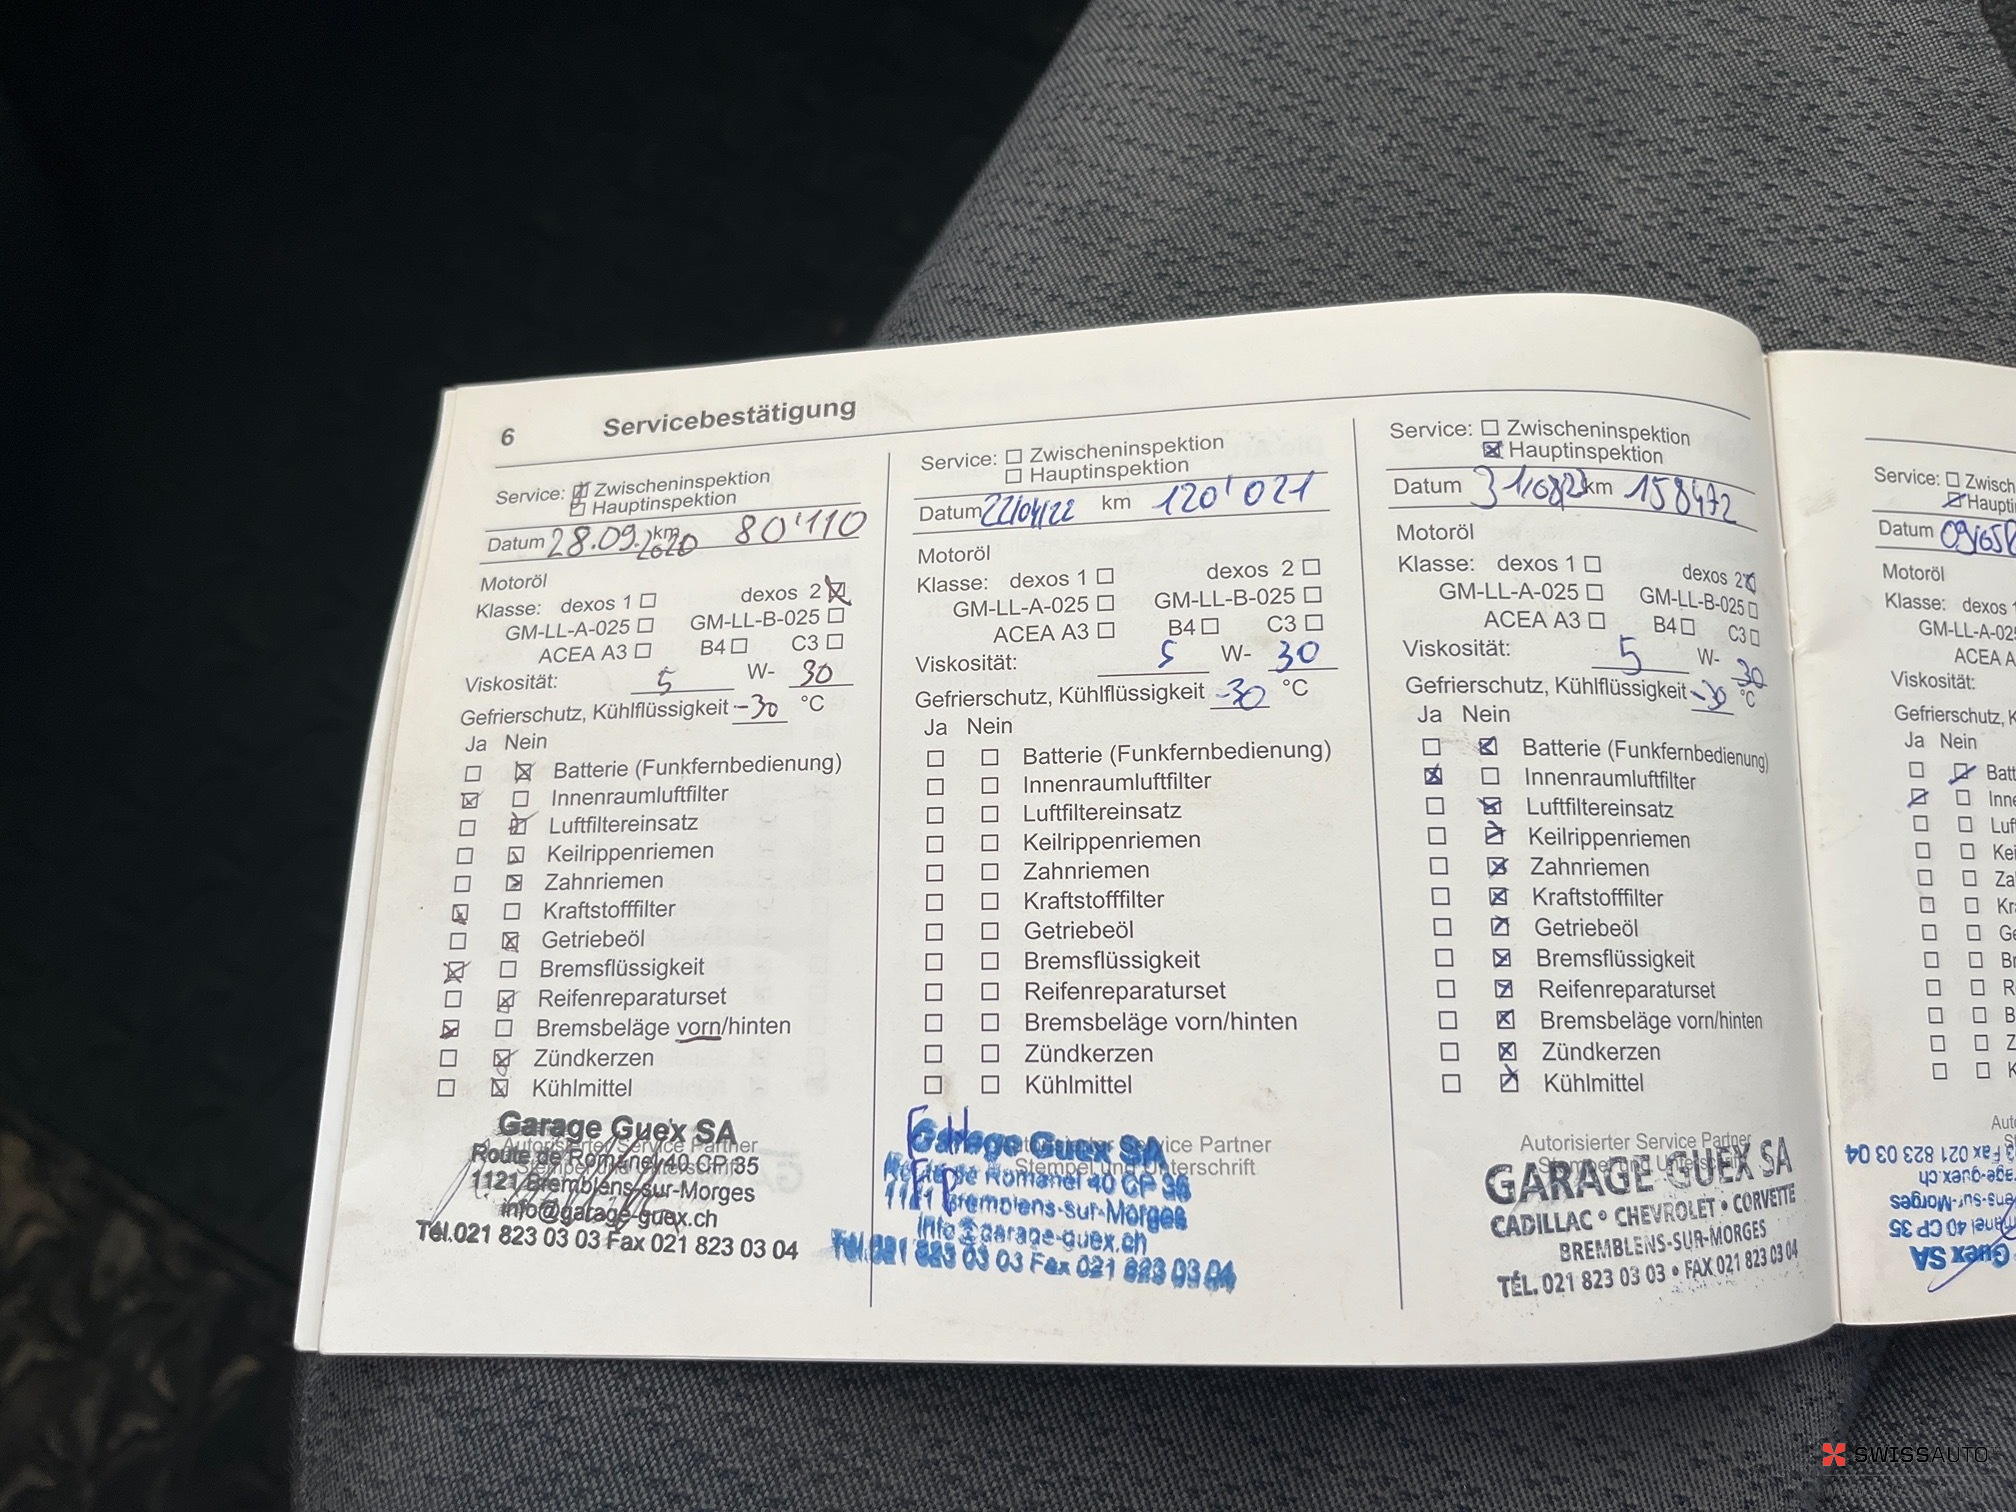 6 Servicebestätigung
Service: Zwischeninspektion
Hauptinspektion
Datum 28.09.2020 km 80'110
Motoröl
Klasse: dexos 1 dexos 2
GM-LL-A-025 GM-LL-B-025
ACEA A3 B4 C3
Viskosität: 5 W- 30
Gefrierschutz, Kühlflüssigkeit -30 °C
Ja Nein
Batterie (Funkfernbedienung)
Innenraumluftfilter
Luftfiltereinsatz
Keilrippenriemen
Zahnriemen
Kraftstofffilter
Getriebeöl
Bremsflüssigkeit
Reifenreparaturset
Bremsbeläge vorn/hinten
Zündkerzen
Kühlmittel
Autorisierter Service Partner
Stempel und Unterschrift
Garage Guex SA
Route de Romanel 40 CP 35
1121 Bremblens-sur-Morges
info@garage-guex.ch
Tél.021 823 03 03 Fax 021 823 03 04
Service: Zwischeninspektion
Hauptinspektion
Datum 22/04/22 km 120'021
Motoröl
Klasse: dexos 1 dexos 2
GM-LL-A-025 GM-LL-B-025
ACEA A3 B4 C3
Viskosität: 5 W- 30
Gefrierschutz, Kühlflüssigkeit -30 °C
Ja Nein
Batterie (Funkfernbedienung)
Innenraumluftfilter
Luftfiltereinsatz
Keilrippenriemen
Zahnriemen
Kraftstofffilter
Getriebeöl
Bremsflüssigkeit
Reifenreparaturset
Bremsbeläge vorn/hinten
Zündkerzen
Kühlmittel
Autorisierter Service Partner
Stempel und Unterschrift
Garage Guex SA
Route de Romanel 40 CP 35
1121 Bremblens-sur-Morges
info@garage-guex.ch
Tél.021 823 03 03 Fax 021 823 03 04
Service: Zwischeninspektion
Hauptinspektion
Datum 31/08/23 km 158472
Motoröl
Klasse: dexos 1 dexos 2
GM-LL-A-025 GM-LL-B-025
ACEA A3 B4 C3
Viskosität: 5 W- 30
Gefrierschutz, Kühlflüssigkeit -30 °C
Ja Nein
Batterie (Funkfernbedienung)
Innenraumluftfilter
Luftfiltereinsatz
Keilrippenriemen
Zahnriemen
Kraftstofffilter
Getriebeöl
Bremsflüssigkeit
Reifenreparaturset
Bremsbeläge vorn/hinten
Zündkerzen
Kühlmittel
Autorisierter Service Partner
GARAGE GUEX SA
CADILLAC • CHEVROLET • CORVETTE
BREMBLENS-SUR-MORGES
TÉL. 021 823 03 03 • FAX 021 823 03 04
Service: Zwisch
Haupti
Datum 09/05/
Motoröl
Klasse: dexos
GM-LL-A-02
ACEA A
Viskosität:
Gefrierschutz, K
Ja Nein
Batt
Inne
Luf
Kei
Za
Kra
Ge
Br
R
B
Z
K
Aut
Fax 021 823 03 04
age-guex.ch
ens-sur-Morges
anel 40 CP 35
Guex SA
SWISSAUTO